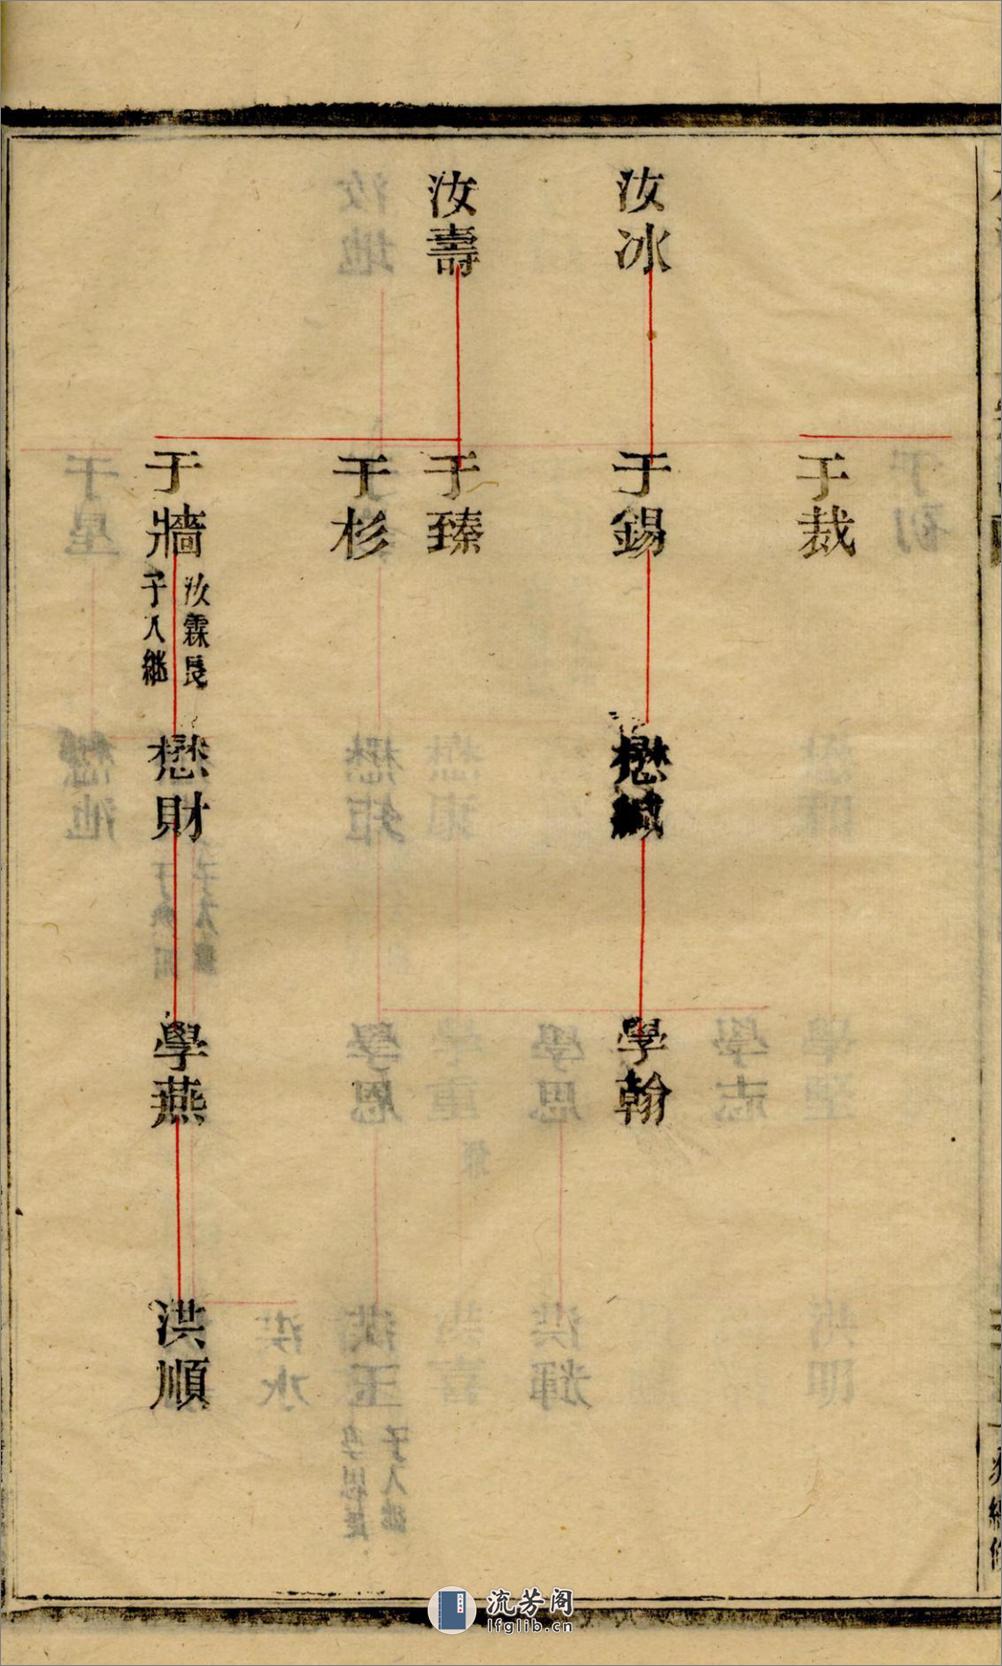 汝冰
汝壽
于裁
于錫
于臻
于杉
于牆
汝霖長
子入繼
懋
懋財
學翰
學燕
洪順
流芳阁
lfglib.cn